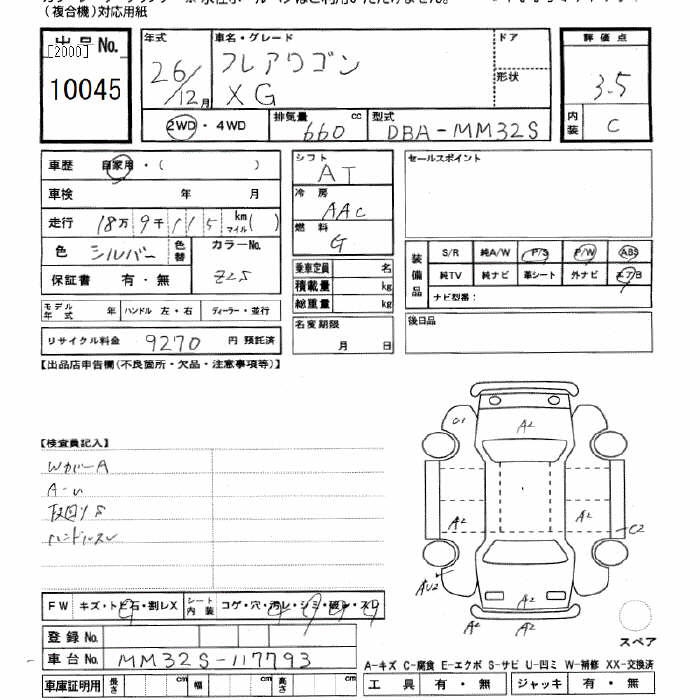 （複合機）対応用紙
出品No.
[2000]
10045
年式
26/12月
車名・グレード
フレアワゴン
XG
ドア
形状
評価点
3.5
内装
C
2WD・4WD
排気量
660 cc
型式
DBA-MM32S
車歴 自家用・（ ）
車検 年 月
走行 18万9千115 km マイル( )
色 シルバー
色替
カラーNo.
Z2S
保証書 有・無
シフト
AT
冷房
AAC
燃料
G
乗車定員 名
積載量 kg
総重量 kg
セールスポイント
装備品
S/R 純A/W P/S P/W ABS
純TV 純ナビ 革シート 外ナビ エアB
ナビ型番：
モデル年式 年 ハンドル 左・右 ディーラー・並行
名変期限
月 日
後日品
リサイクル料金 9270 円 預託済
【出品店申告欄(不良箇所・欠品・注意事項等)】
【検査員記入】
WカバーA
ハンドルスレ
G1
A2
A2
A2
C2
AU2
A2
A2
A2
スペア
FW キズ・トビ石・割レX
シート内装 コゲ・穴・汚レ・シミ・破レ・スレ
登録No.
車台No. MM32S-117793
車庫証明用 長さ cm 幅 cm 高さ cm
A-キズ C-腐食 E-エクボ S-サビ U-凹ミ W-補修 XX-交換済
工具 有・無 ジャッキ 有・無